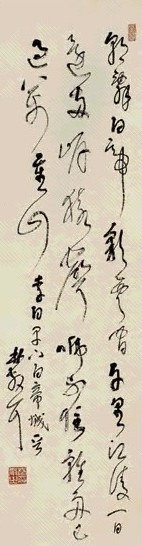 朝辭白帝彩雲間千里江陵一日
還兩岸猿聲啼不住輕舟已
過萬重山 李白早下白帝城詩
林散耳